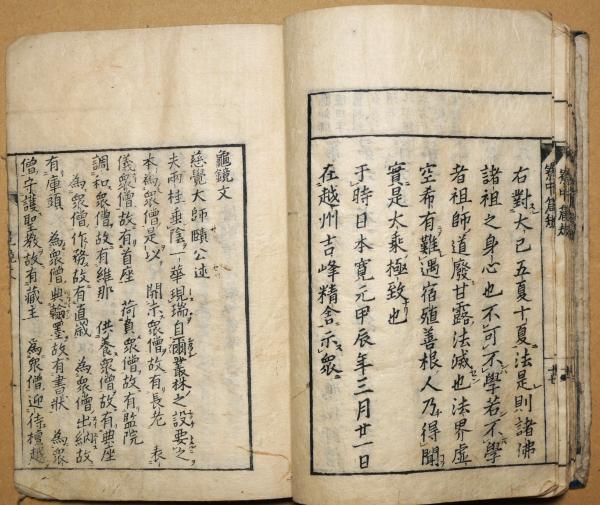 右對大己五夏十夏法是則諸佛
諸祖之身心也不可不學若不學
者祖師道廢甘露法滅也法界虛
空希有難遇宿殖善根人乃得聞
實是大乘極致也
于時日本寛元甲辰年三月廿一日
在越州吉峰精舍示衆
龜鏡文
慈覺大師頤公述
夫兩桂垂陰一華現瑞自爾叢林之設要之
本爲衆僧是以開示衆僧故有長老 表
儀衆僧故有首座 荷負衆僧故有監院
調和衆僧故有維那 供養衆僧故有典座
爲衆僧作務故有直歳 爲衆僧出納故
有庫頭 爲衆僧典翰墨故有書狀 爲衆
僧守護聖教故有藏主 爲衆僧迎待檀越